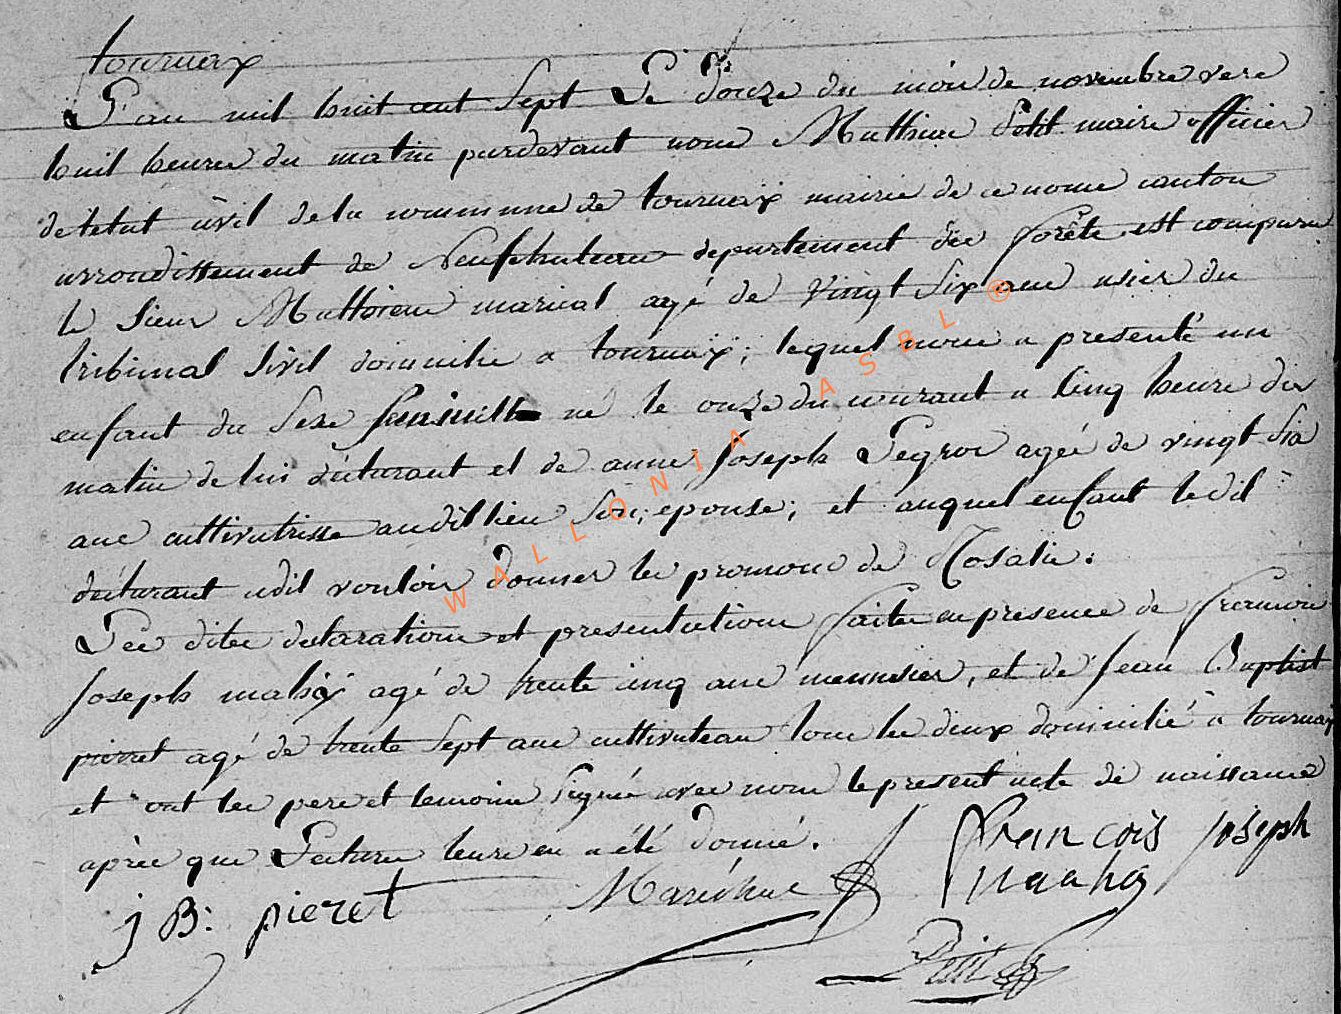 tournay
L'an mil huit cent Sept Le Douze du mois de novembre vers
huit heures du matin pardevant nous Mathieu Petit maire officier
detetat civil dela commune de tournay mairie de ce nome canton
arrondissement de Neufchateau departement des forêts est comparu
le Sieur Mathieu agé de Vingt Six ans usier du
tribunal Sivil domicilie a tournay; lequel nous a presenté un
enfant du Sexe né le onze du courant a Cinq heure du
matin de lui déclarant et de anne Joseph agée de vingt Six
ans cultivatrisse audit lieu Son epouse; et auquel enfant ledit
déclarant adit vouloir donner les prenom de Rosalie.
Les dites declaration et presentation faite en presence de francois
Joseph agé de trente cinq ans menusier, et de Jean Baptist
pierret agé de trente Sept ans cultivateur tous les deux domicilié a tournay
et ont les pere et temoins Signé avec nous le present acte de naissance
après que Lecture leurs en a été donné.
françois Joseph
mahy
J B: pieret
Maréchal
Petit
WALLONIA ASBL ®